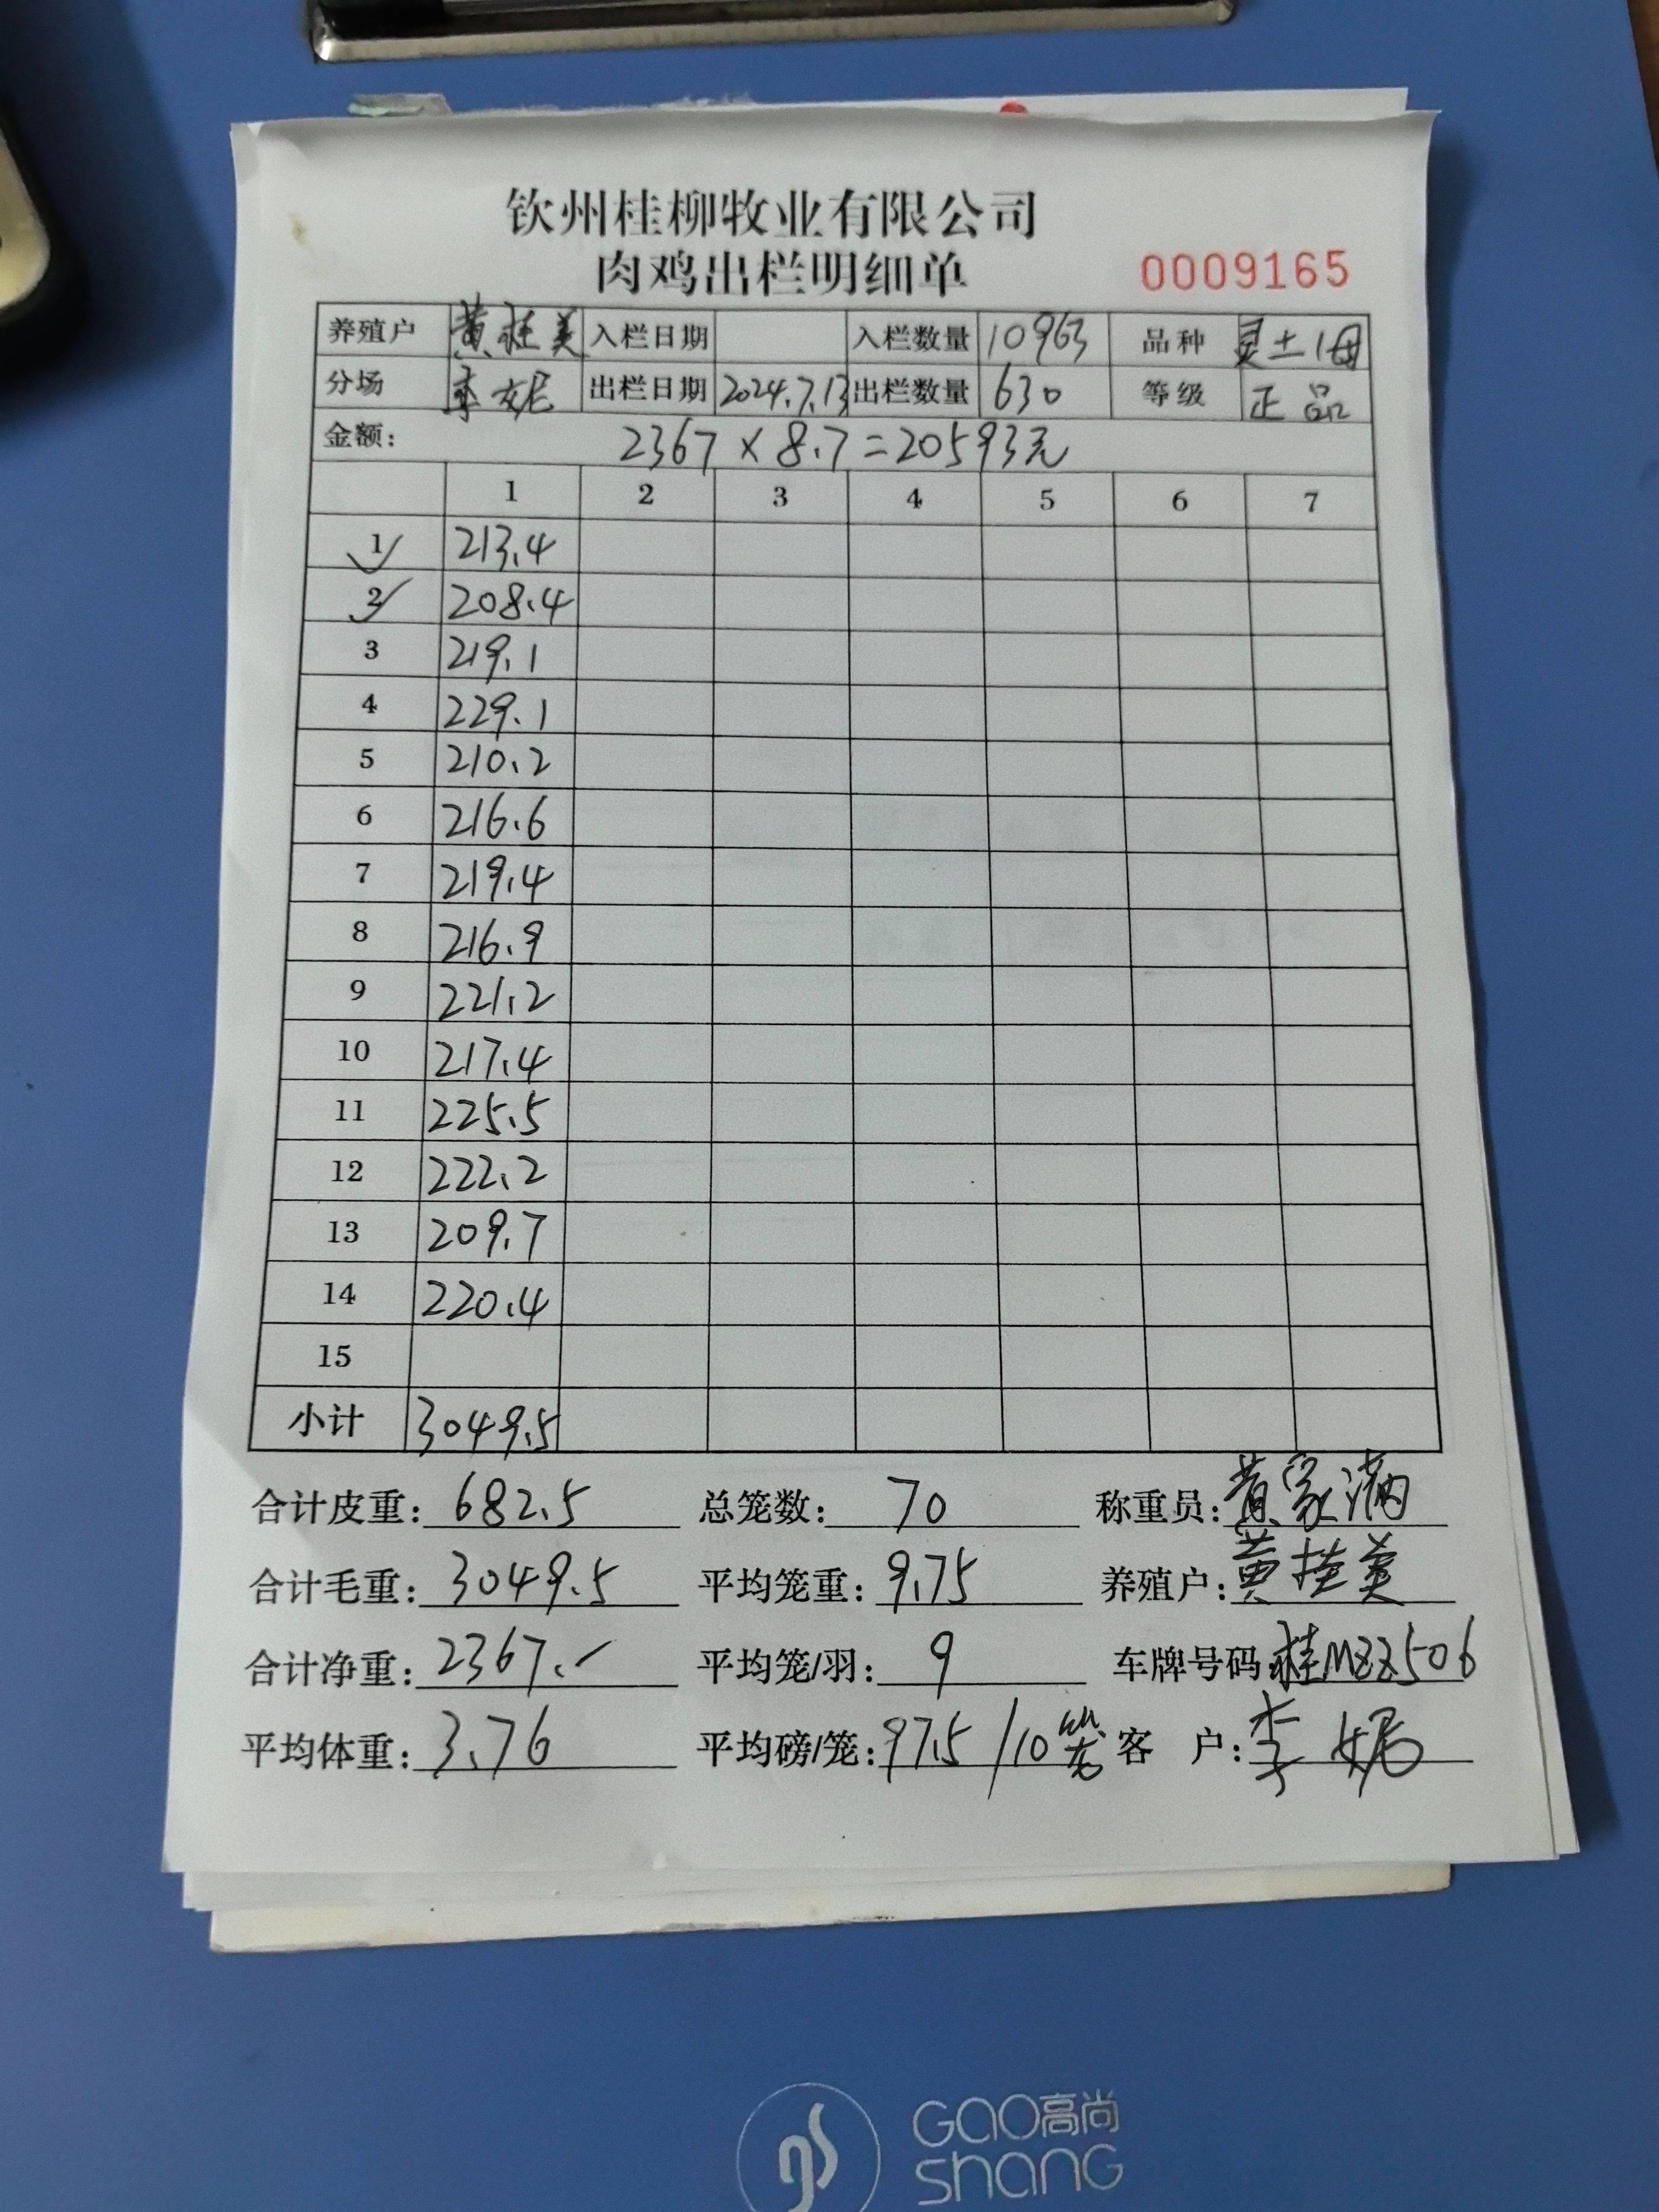 钦州桂柳牧业有限公司
肉鸡出栏明细单 0009165
养殖户 黄桂美 入栏日期 入栏数量 10963 品种 灵土1母
分场 李妮 出栏日期 2024.7.13 出栏数量 630 等级 正品
金额: 2367 × 8.7 = 20593元
1 2 3 4 5 6 7
1 213.4
2 208.4
3 219.1
4 229.1
5 210.2
6 216.6
7 219.4
8 216.9
9 221.2
10 217.4
11 225.5
12 222.2
13 209.7
14 220.4
15
小计 3049.5
合计皮重: 682.5 总笼数: 70 称重员: 黄家满
合计毛重: 3049.5 平均笼重: 9.75 养殖户: 黄桂美
合计净重: 2367.- 平均笼/羽: 9 车牌号码 桂MZZ506
平均体重: 3.76 平均磅/笼: 97.5/10笼 客 户: 李妮
GAO高尚
SHANG